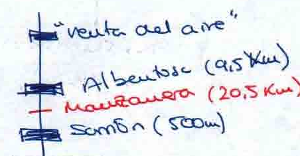 "venta del aire"
Albentosa (9,5 Km)
Manzanera (20,5 Km)
Sarrión (500m)